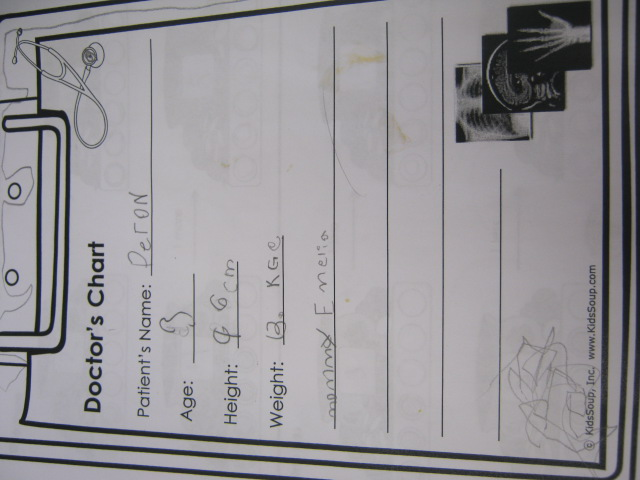 Doctor's Chart
Patient's Name: PeroN
Age: 3
Height: 96 cm
Weight: KGC
Emelia
© KidsSoup, Inc, www.KidsSoup.com